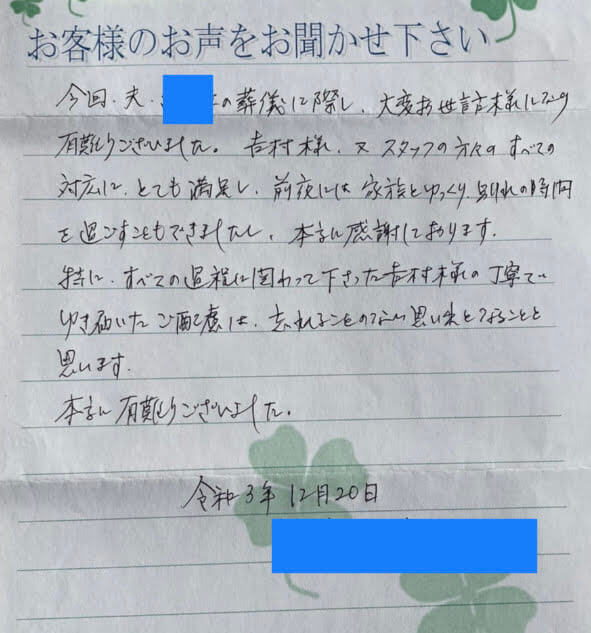 お客様のお声をお聞かせ下さい
今回、夫、の葬儀に際し、大変お世話様になり
有難うございました。吉村様、又スタッフの方々のすべての
対応に、とても満足し、前夜には家族とゆっくり別れの時間
を過ごすこともできましたし、本当に感謝しております。
特に、すべての過程に関わって下さった吉村様の丁寧で
ゆき届いたご配慮は、忘れることのない思い出となることと
思います。
本当に有難うございました。
令和3年12月20日